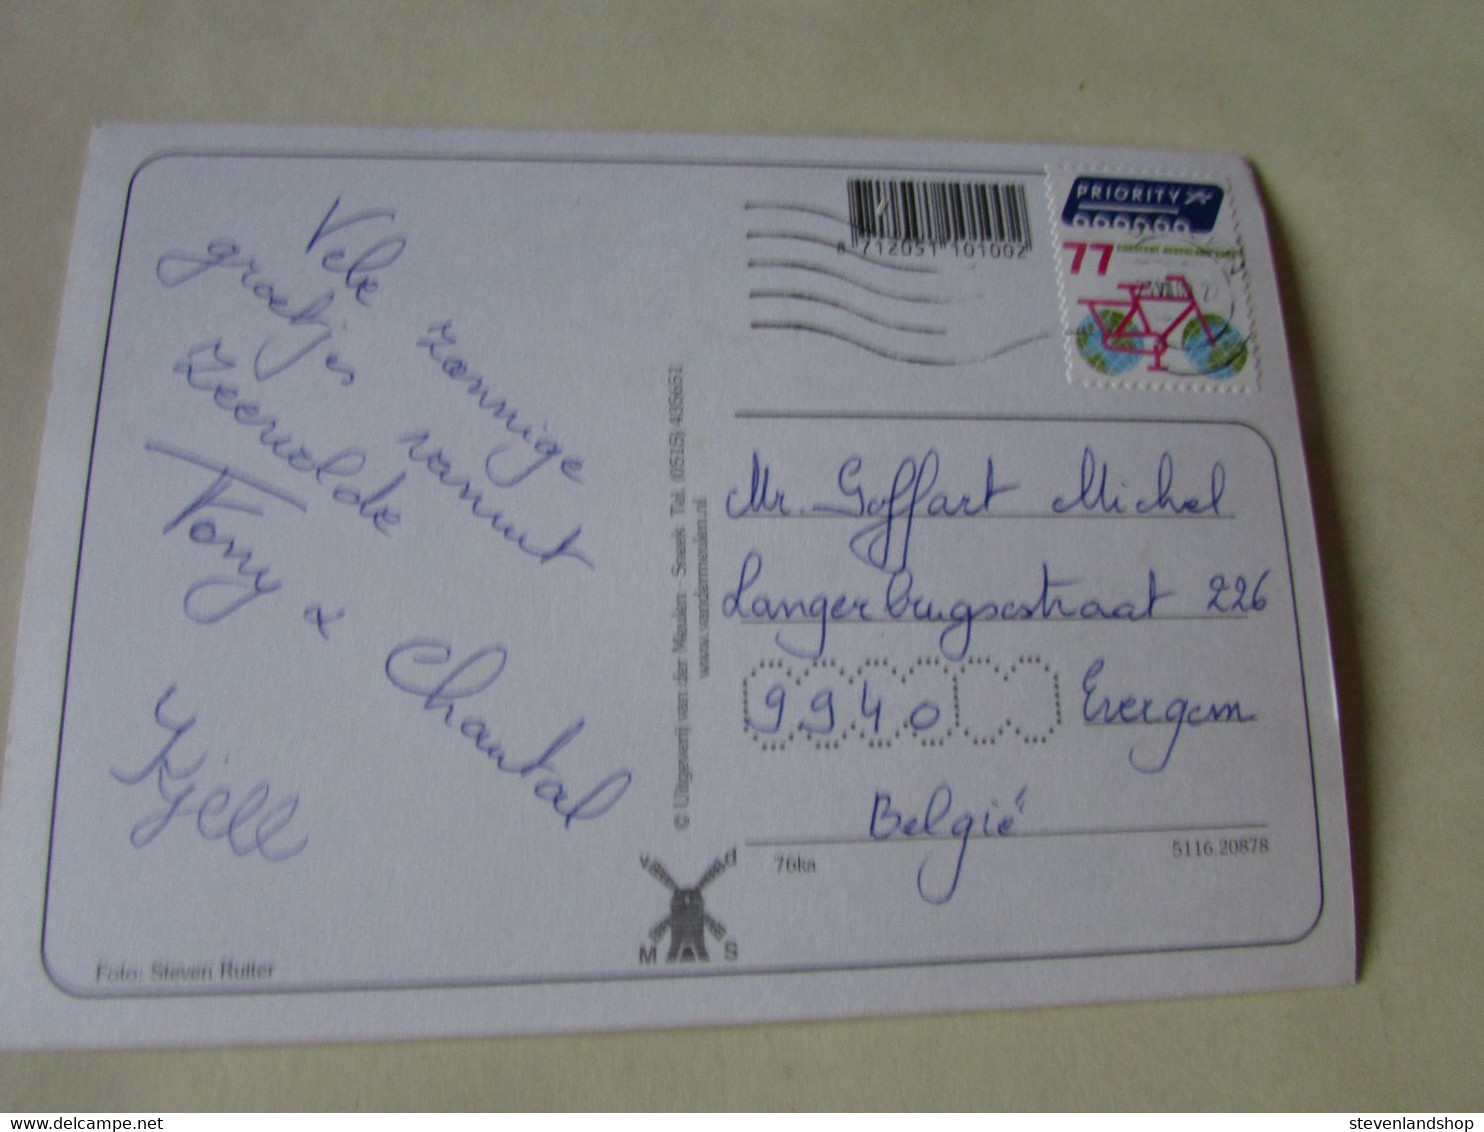 Vele zonnige
groetjes vanuit
Zeewolde
Tony & Chantal
Kjell
Foto: Steven Ruiter
© Uitgeverij van der Meulen - Sneek Tel. (0515) 435651
www.vandermeulen.nl
v d
M S
8 712051 101002
PRIORITY
77
Mr. Goffart Michel
Langerbrugsestraat 226
9940 Evergem
België
76ka
5116.20878
stevenlandshop